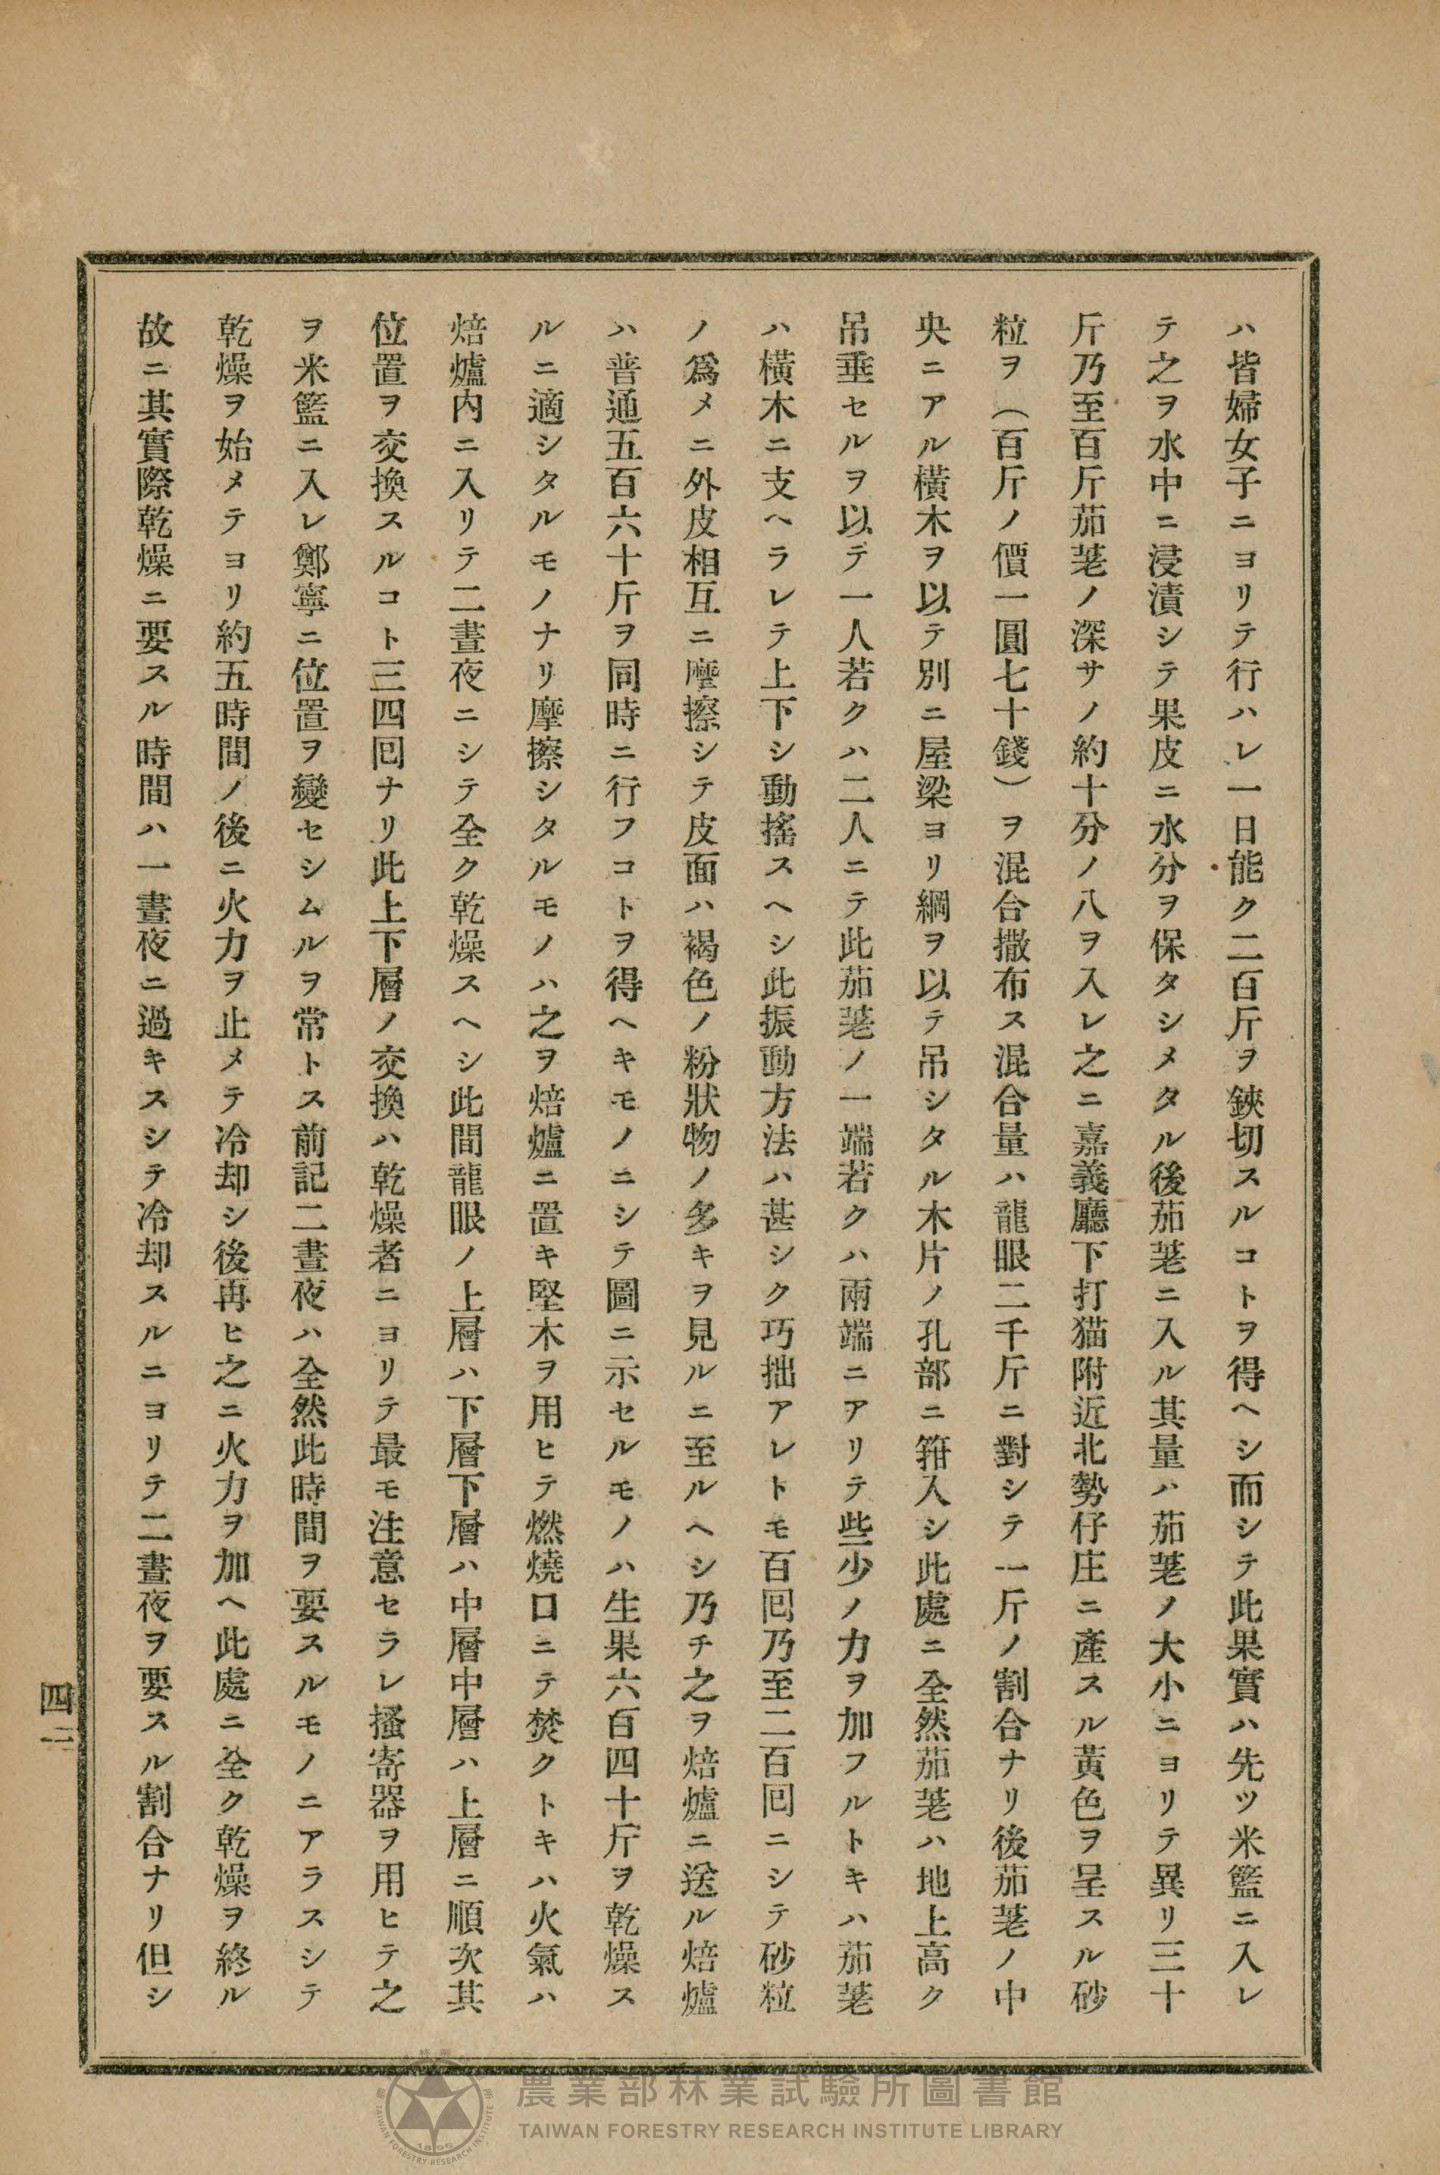 ハ皆婦女子ニヨリテ行ハレ一日能ク二百斤ヲ鋏切スルコトヲ得ヘシ而シテ此果實ハ先ツ米籃ニ入レ
テ之ヲ水中ニ浸漬シテ果皮ニ水分ヲ保タシメタル後茄荖ニ入ル其量ハ茄荖ノ大小ニヨリテ異リ三十
斤乃至百斤茄荖ノ深サノ約十分ノ八ヲ入レ之ニ嘉義廳下打猫附近北勢仔庄ニ產スル黃色ヲ呈スル砂
粒ヲ（百斤ノ價一圓七十錢）ヲ混合撒布ス混合量ハ龍眼二千斤ニ對シテ一斤ノ割合ナリ後茄荖ノ中
央ニアル橫木ヲ以テ別ニ屋梁ヨリ綱ヲ以テ吊シタル木片ノ孔部ニ箝入シ此處ニ全然茄荖ハ地上高ク
吊垂セルヲ以テ一人若クハ二人ニテ此茄荖ノ一端若クハ兩端ニアリテ些少ノ力ヲ加フルトキハ茄荖
ハ橫木ニ支ヘラレテ上下シ動搖スヘシ此振動方法ハ甚シク巧拙アレトモ百回乃至二百回ニシテ砂粒
ノ爲メニ外皮相互ニ摩擦シテ皮面ハ褐色ノ粉狀物ノ多キヲ見ルニ至ルヘシ乃チ之ヲ焙爐ニ送ル焙爐
ハ普通五百六十斤ヲ同時ニ行フコトヲ得ヘキモノニシテ圖ニ示セルモノハ生果六百四十斤ヲ乾燥ス
ルニ適シタルモノナリ摩擦シタルモノハ之ヲ焙爐ニ置キ堅木ヲ用ヒテ燃燒口ニテ焚クトキハ火氣ハ
焙爐內ニ入リテ二晝夜ニシテ全ク乾燥スヘシ此間龍眼ノ上層ハ下層下層ハ中層中層ハ上層ニ順次其
位置ヲ交換スルコト三四回ナリ此上下層ノ交換ハ乾燥者ニヨリテ最モ注意セラレ搔寄器ヲ用ヒテ之
ヲ米籃ニ入レ鄭寧ニ位置ヲ變セシムルヲ常トス前記二晝夜ハ全然此時間ヲ要スルモノニアラスシテ
乾燥ヲ始メテヨリ約五時間ノ後ニ火力ヲ止メテ冷却シ後再ヒ之ニ火力ヲ加ヘ此處ニ全ク乾燥ヲ終ル
故ニ其實際乾燥ニ要スル時間ハ一晝夜ニ過キスシテ冷却スルニヨリテ二晝夜ヲ要スル割合ナリ但シ
四二
農業部林業試驗所圖書館
TAIWAN FORESTRY RESEARCH INSTITUTE LIBRARY